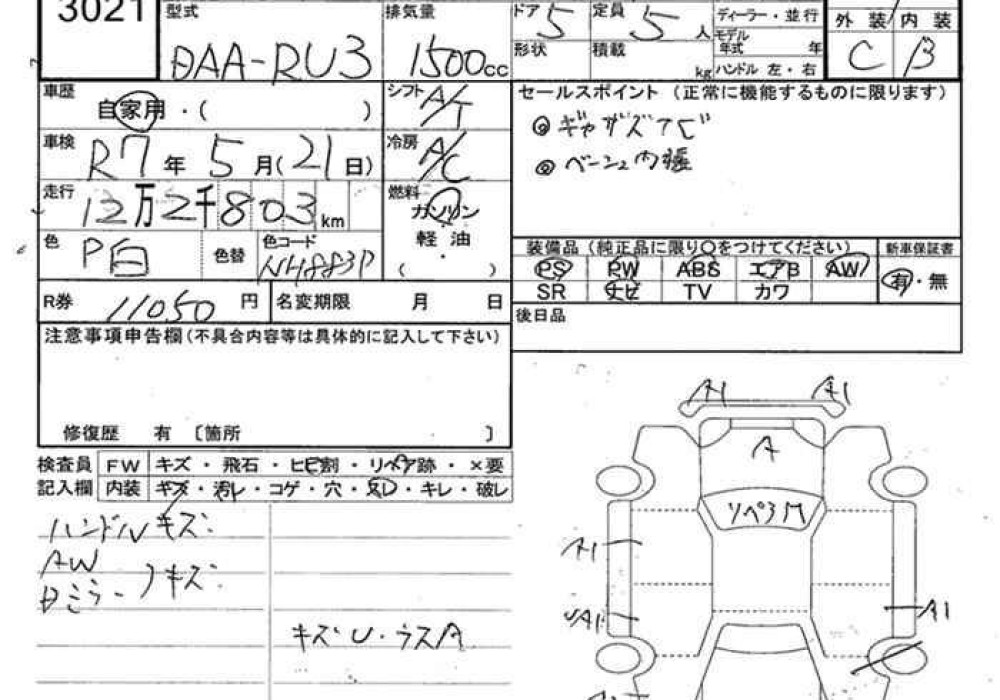 3021
型式
DAA-RU3
排気量
1500cc
ドア 5
定員 5 人
形状
積載 kg
ディーラー・並行
モデル年式 年
ハンドル 左・右
外装 内装
C B
車歴
自家用・( )
シフト A/T
車検
R7年5月(21日)
冷房 A/C
走行
12万2千803km
燃料
ガソリン
軽・油
( )
色
P白
色替
色コード
NH883P
R券 11050円
名変期限 月 日
セールスポイント(正常に機能するものに限ります)
◎ギャザズナビ
装備品(純正品に限り○をつけてください)
新車保証書
PS PW ABS エアB AW
有・無
SR ナビ TV カワ
後日品
注意事項申告欄(不具合内容等は具体的に記入して下さい)
修復歴 有 〔箇所 〕
検査員記入欄
FW キズ・飛石・ヒビ割・リペア跡・×要
内装 キズ・汚レ・コゲ・穴・スレ・キレ・破レ
ハンドルキズ
AW
Dミラー キズ
キズU・ウスA
A1 A1
A
リペラ
A1
UA1
A1